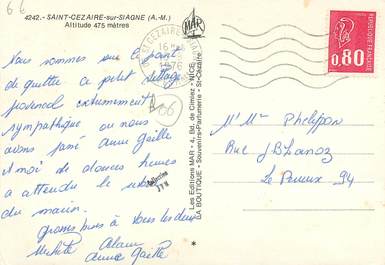 66
4242.- SAINT-CEZAIRE-sur-SIAGNE (A.-M.)
Altitude 475 mètres
Nous sommes sur le point
de quitter ce petit village
provençal extrêmement
sympathique où nous
avons passé avec Gaëlle
et moi de douces heures
a attendu le
du marin.
grosses bises à tous les deux
Alain
Anne Gaëlle
06
MAR
ST CEZAIRE
16
1976
Les Editions MAR - 4, Bd. de Cimiez - NICE
LA BOUTIQUE - Souvenirs-Parfumerie - St-Cézaire
RÉPUBLIQUE FRANÇAISE
0,80
Mr Mme Phelippon
Rue JB
Le Perreux 94